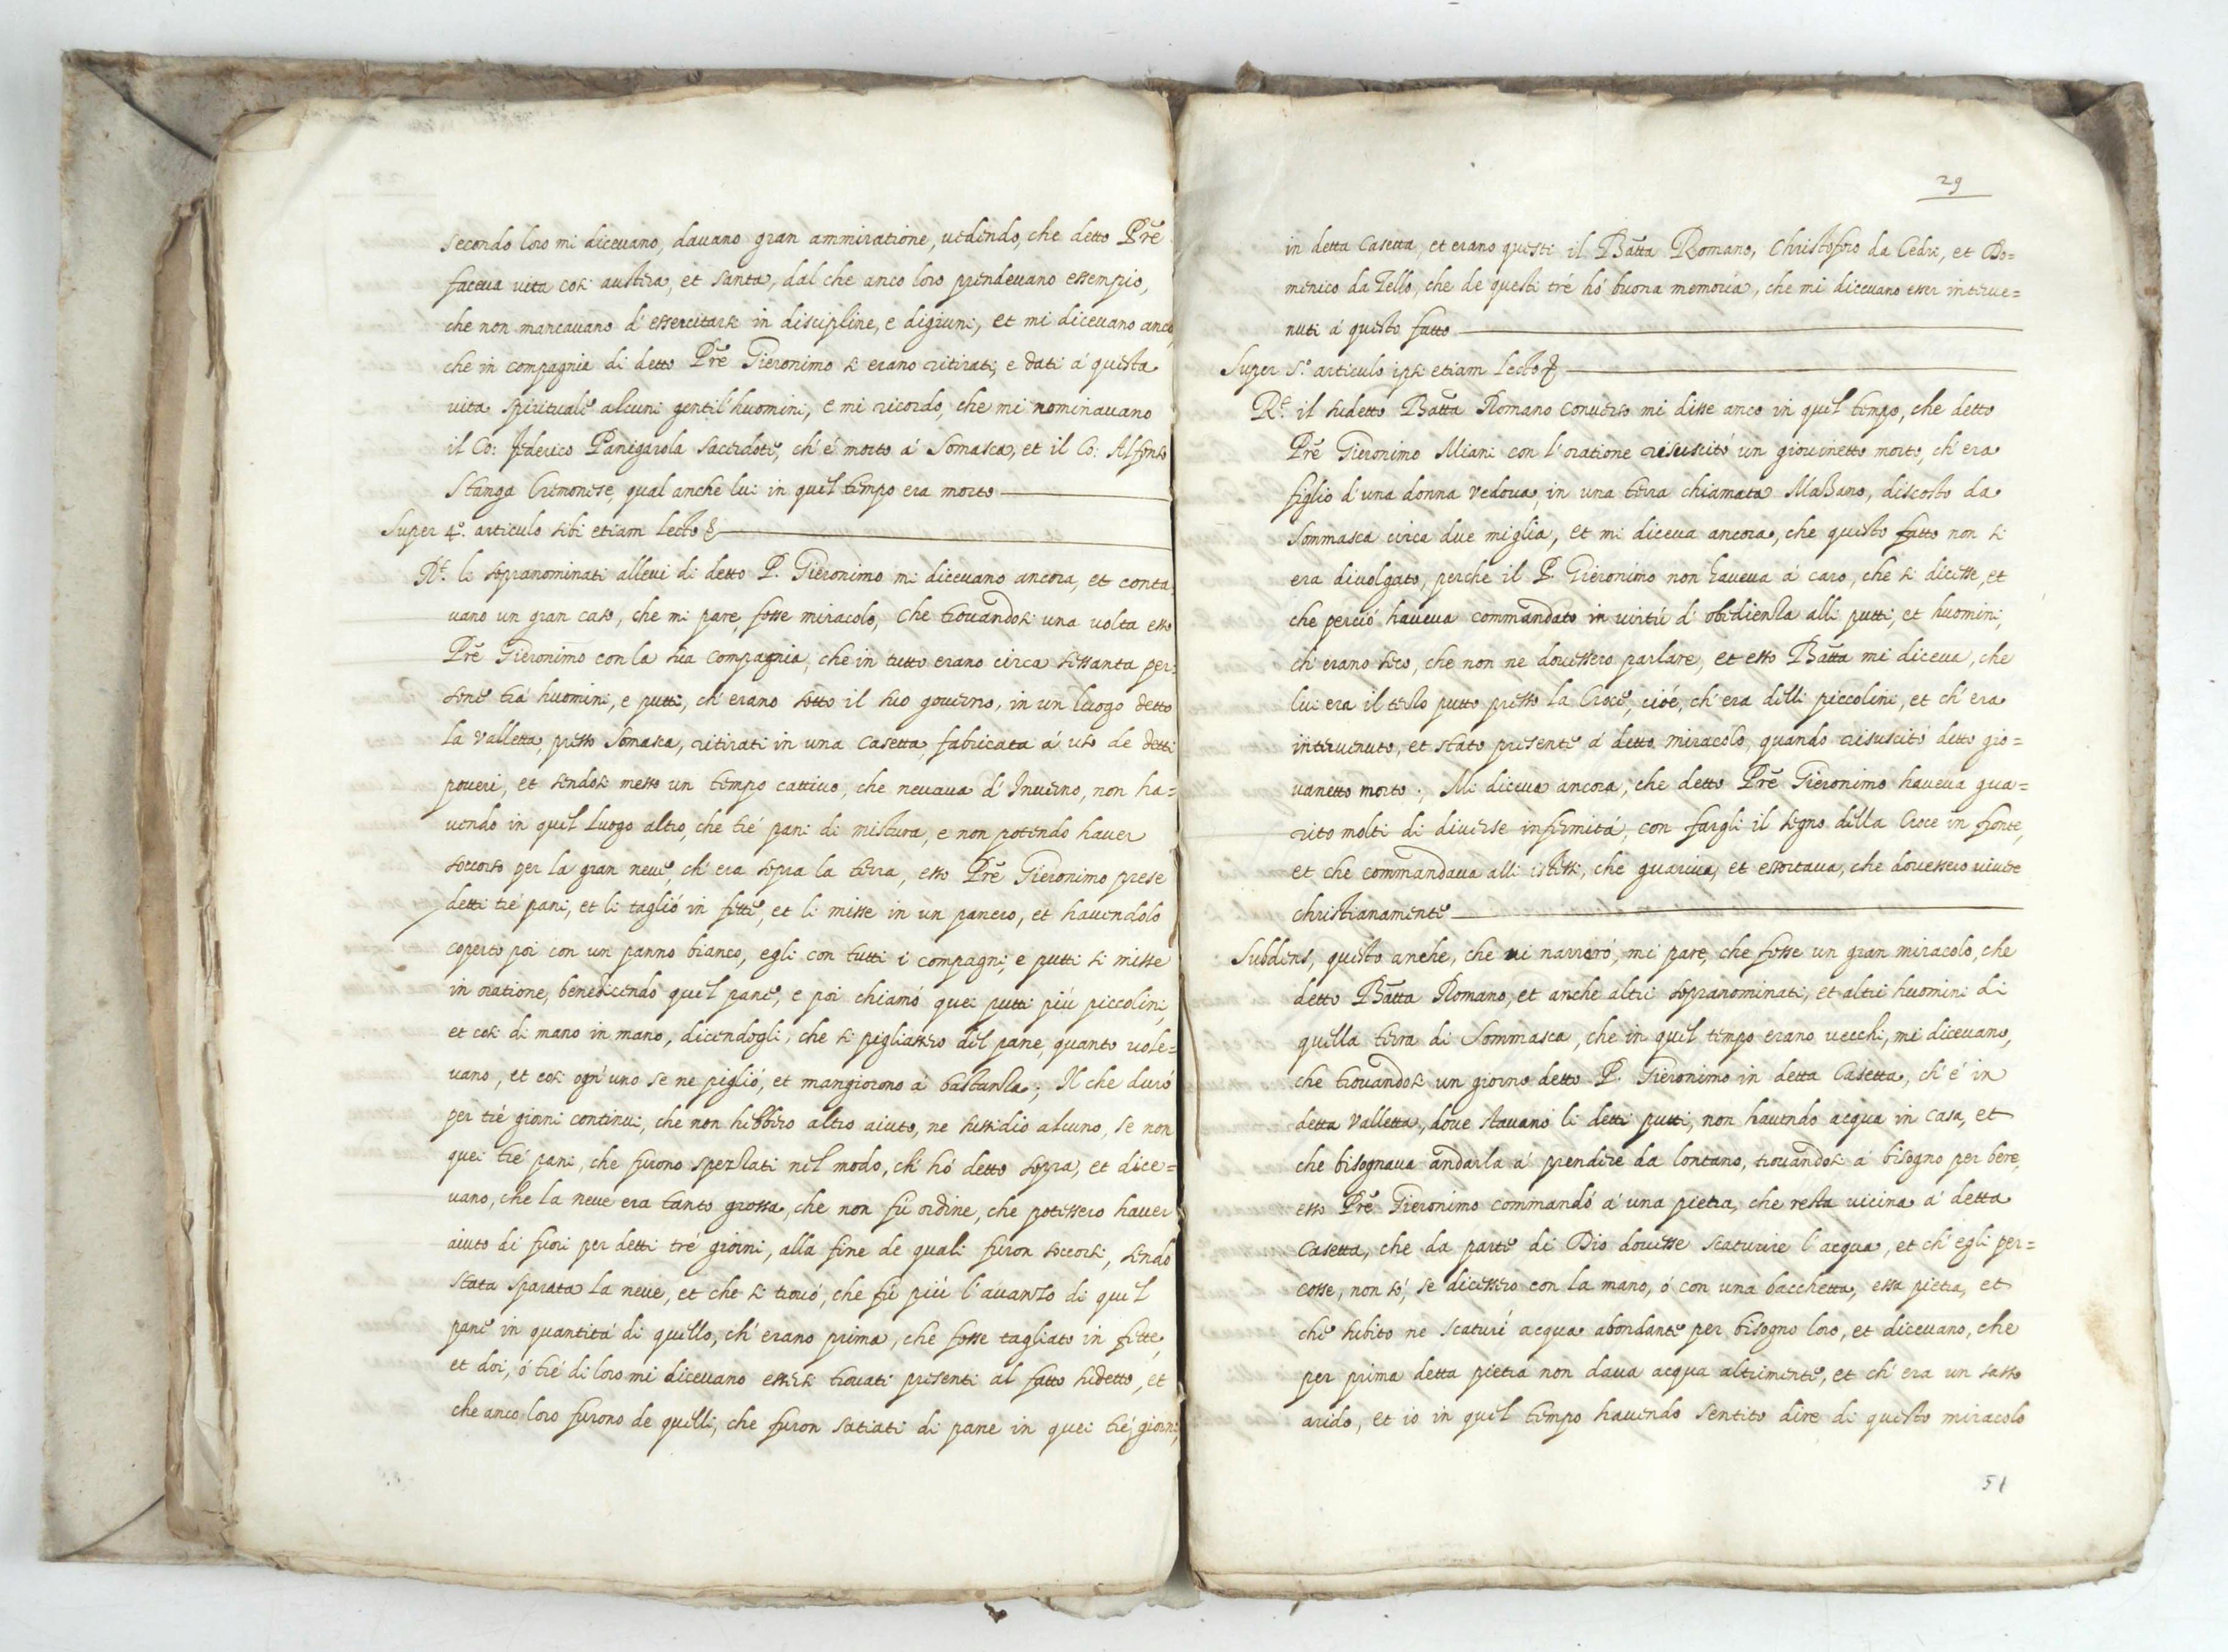 secondo loro mi diceuano, dauano gran ammiratione, uedendo, che detto Prē
faceua uita cosi austera, et santa, dal che anco loro prendeuano essempio,
che non mancauano d' essercitarsi in discipline, e digiuni, et mi diceuano anco,
che in compagnia di detto Prē Gieronimo si erano ritirati, e dati à questa
uita spirituale alcuni gentil'huomini, e mi ricordo, che mi nominauano
il Co: Federico Panigarola sacerdote, ch' è morto à Somasca, et il Co: Alfonso
Stanga Cremonese, qual anche lui in quel tempo era morto
Super 4.º articulo sibi etiam lecto
Rt. li sopranominati alleui di detto P. Gieronimo mi diceuano ancora, et conta
uano un gran caso, che mi pare, fosse miracolo, che trouandosi una uolta esso
Prē Gieronimo con la sua compagnia, che in tutto erano circa sessanta per=
sone trà huomini, e putti, ch' erano sotto il suo gouerno, in un luogo detto
la Valletta, presso Somasca, ritirati in una casetta, fabricata à uso de detti
poueri, et sendosi messo un tempo cattiuo, che neuaua d' Inuerno, non ha=
uendo in quel luogo altro, che trè pani di mistura, e non potendo hauer
soccorso per la gran neue, ch' era sopra la terra, esso Prē Gieronimo prese
detti trè pani, et li tagliò in fette, et li misse in un panero, et hauendolo
coperto poi con un panno bianco, egli con tutti i compagni, e putti si misse
in oratione, benedicendo quel pane, e poi chiamò quei putti più piccolini,
et cosi di mano in mano, dicendogli, che si pigliassero del pane, quanto uole=
uano, et cosi ogn' uno se ne pigliò, et mangiorono à bastanza; Il che durò
per trè giorni continui, che non hebbero altro aiuto, ne sussidio alcuno, se non
quei trè pani, che furono spezzati nel modo, ch' hò detto sopra, et dice=
uano, che la neue era tanto grossa, che non fù ordine, che potessero hauer
aiuto di fuori per detti trè giorni, alla fine de quali furon soccorsi, sendo
stata sparata la neue, et che si trouò, che fù più l' auanzo di quel
pane in quantità di quello, ch' erano prima, che fosse tagliato in fette,
et doi, ò trè di loro mi diceuano essersi trouati presenti al fatto sudetto, et
che anco loro furono de quelli, che furon satiati di pane in quei trè giorni,
29
in detta casetta, et erano questi il Batta Romano, Christoforo da Cedri, et Do=
menico da Tello, che de questi trè hò buona memoria, che mi diceuano esser interue=
nuti à questo fatto
Super 5.º articulo ipsi etiam lecto
Rt. il sudetto Batta Romano conuerso mi disse anco in quel tempo, che detto
Prē Gieronimo Miani con l' oratione resuscitò un giouinetto morto, ch' era
figlio d' una donna vedoua, in una terra chiamata Massano, discosto da
Sommasca circa due miglia, et mi diceua ancora, che questo fatto non si
era diuolgato, perche il P. Gieronimo non haueua à caro, che si dicesse, et
che perciò haueua commandato in uirtù d' obedienza alli putti, et huomini,
ch' erano seco, che non ne douessero parlare, et esso Batta mi diceua, che
lui era il terzo putto presso la Croce, cioè, ch' era delli piccolini, et ch' era
interuenuto, et stato presente à detto miracolo, quando risuscitò detto gio=
uanetto morto; Mi diceua ancora, che detto Prē Gieronimo haueua gua=
rito molti di diuerse infermità, con fargli il segno della Croce in fronte,
et che commandaua alli istessi, che guariua, et essortaua, che douessero uiuere
christianamente
Subdens, questo anche, che ui narrerò, mi pare, che fosse un gran miracolo, che
detto Batta Romano, et anche altri sopranominati, et altri huomini di
quella terra di Sommasca, che in quel tempo erano uecchi, mi diceuano,
che trouandosi un giorno detto P. Gieronimo in detta Casetta, ch' è in
detta Valletta, doue stauano li detti putti, non hauendo acqua in casa, et
che bisognaua andarla à prendere da lontano, trouandosi à bisogno per bere,
esso Prē Gieronimo commandò à una pietra, che resta uicina à detta
Casetta, che da parte di Dio douesse scaturire l' acqua, et ch' egli per=
cosse, non sò, se dicessero con la mano, ò con una bacchetta, essa pietra, et
che subito ne scaturì acqua abondante per bisogno loro, et diceuano, che
per prima detta pietra non daua acqua altrimente, et ch' era un sasso
arido, et io in quel tempo hauendo sentito dire di questo miracolo
51